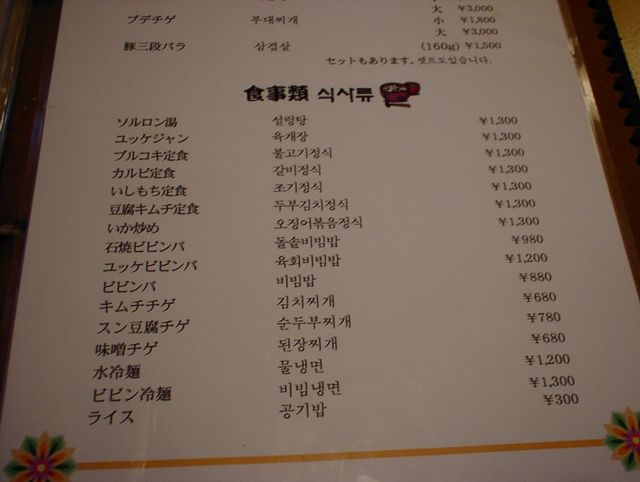 大 ¥3,000
プデチゲ 부대찌개 小 ¥1,800
大 ¥3,000
豚三段バラ 삼겹살 (160g) ¥1,500
セットもあります。셋트도있습니다.
食事類 식사류
ソルロン湯 설렁탕 ¥1,300
ユッケジャン 육개장 ¥1,300
ブルコキ定食 불고기정식 ¥1,300
カルビ定食 갈비정식 ¥1,300
いしもち定食 조기정식 ¥1,300
豆腐キムチ定食 두부김치정식 ¥1,300
いか炒め 오징어볶음정식 ¥1,300
石焼ビビンバ 돌솥비빔밥 ¥980
ユッケビビンバ 육회비빔밥 ¥1,200
ビビンバ 비빔밥 ¥880
キムチチゲ 김치찌개 ¥680
スン豆腐チゲ 순두부찌개 ¥780
味噌チゲ 된장찌개 ¥680
水冷麺 물냉면 ¥1,200
ビビン冷麺 비빔냉면 ¥1,300
ライス 공기밥 ¥300